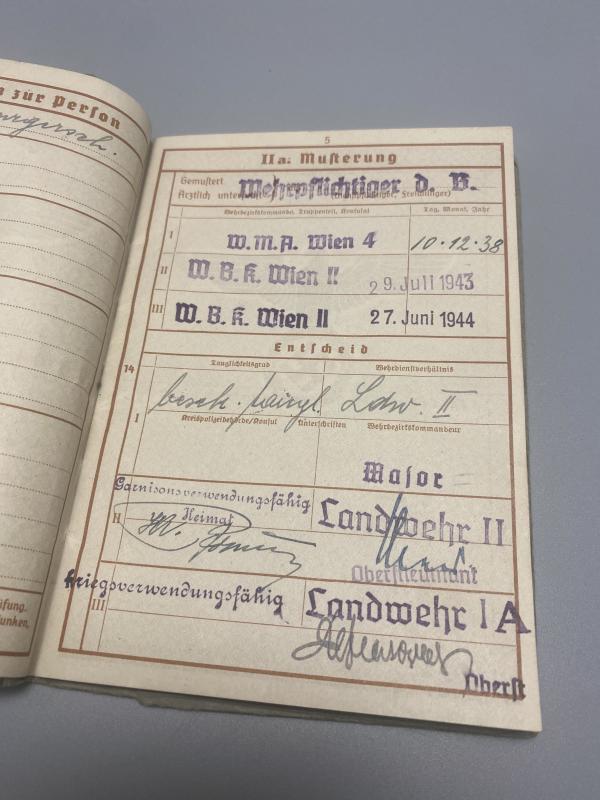 zur Person
5
IIa. Musterung
Gemustert
Wehrpflichtiger d. B.
Ärztlich
Wehrbezirkskommando, Truppenteil, Konsulat Tag, Monat, Jahr
I W.M.A. Wien 4 10.12.38
II W.B.K. Wien II 29. Juli 1943
III W.B.K. Wien II 27. Juni 1944
Entscheid
14 Tauglichkeitsgrad Wehrdienstverhältnis
besch. taugl. Ldw. II
I Kreispolizeibehörde/Konsul Unterschriften Wehrbezirkskommandeur
Major
Garnisonsverwendungsfähig Landwehr II
II Heimat
Oberstleutnant
kriegsverwendungsfähig Landwehr I A
III
Oberst